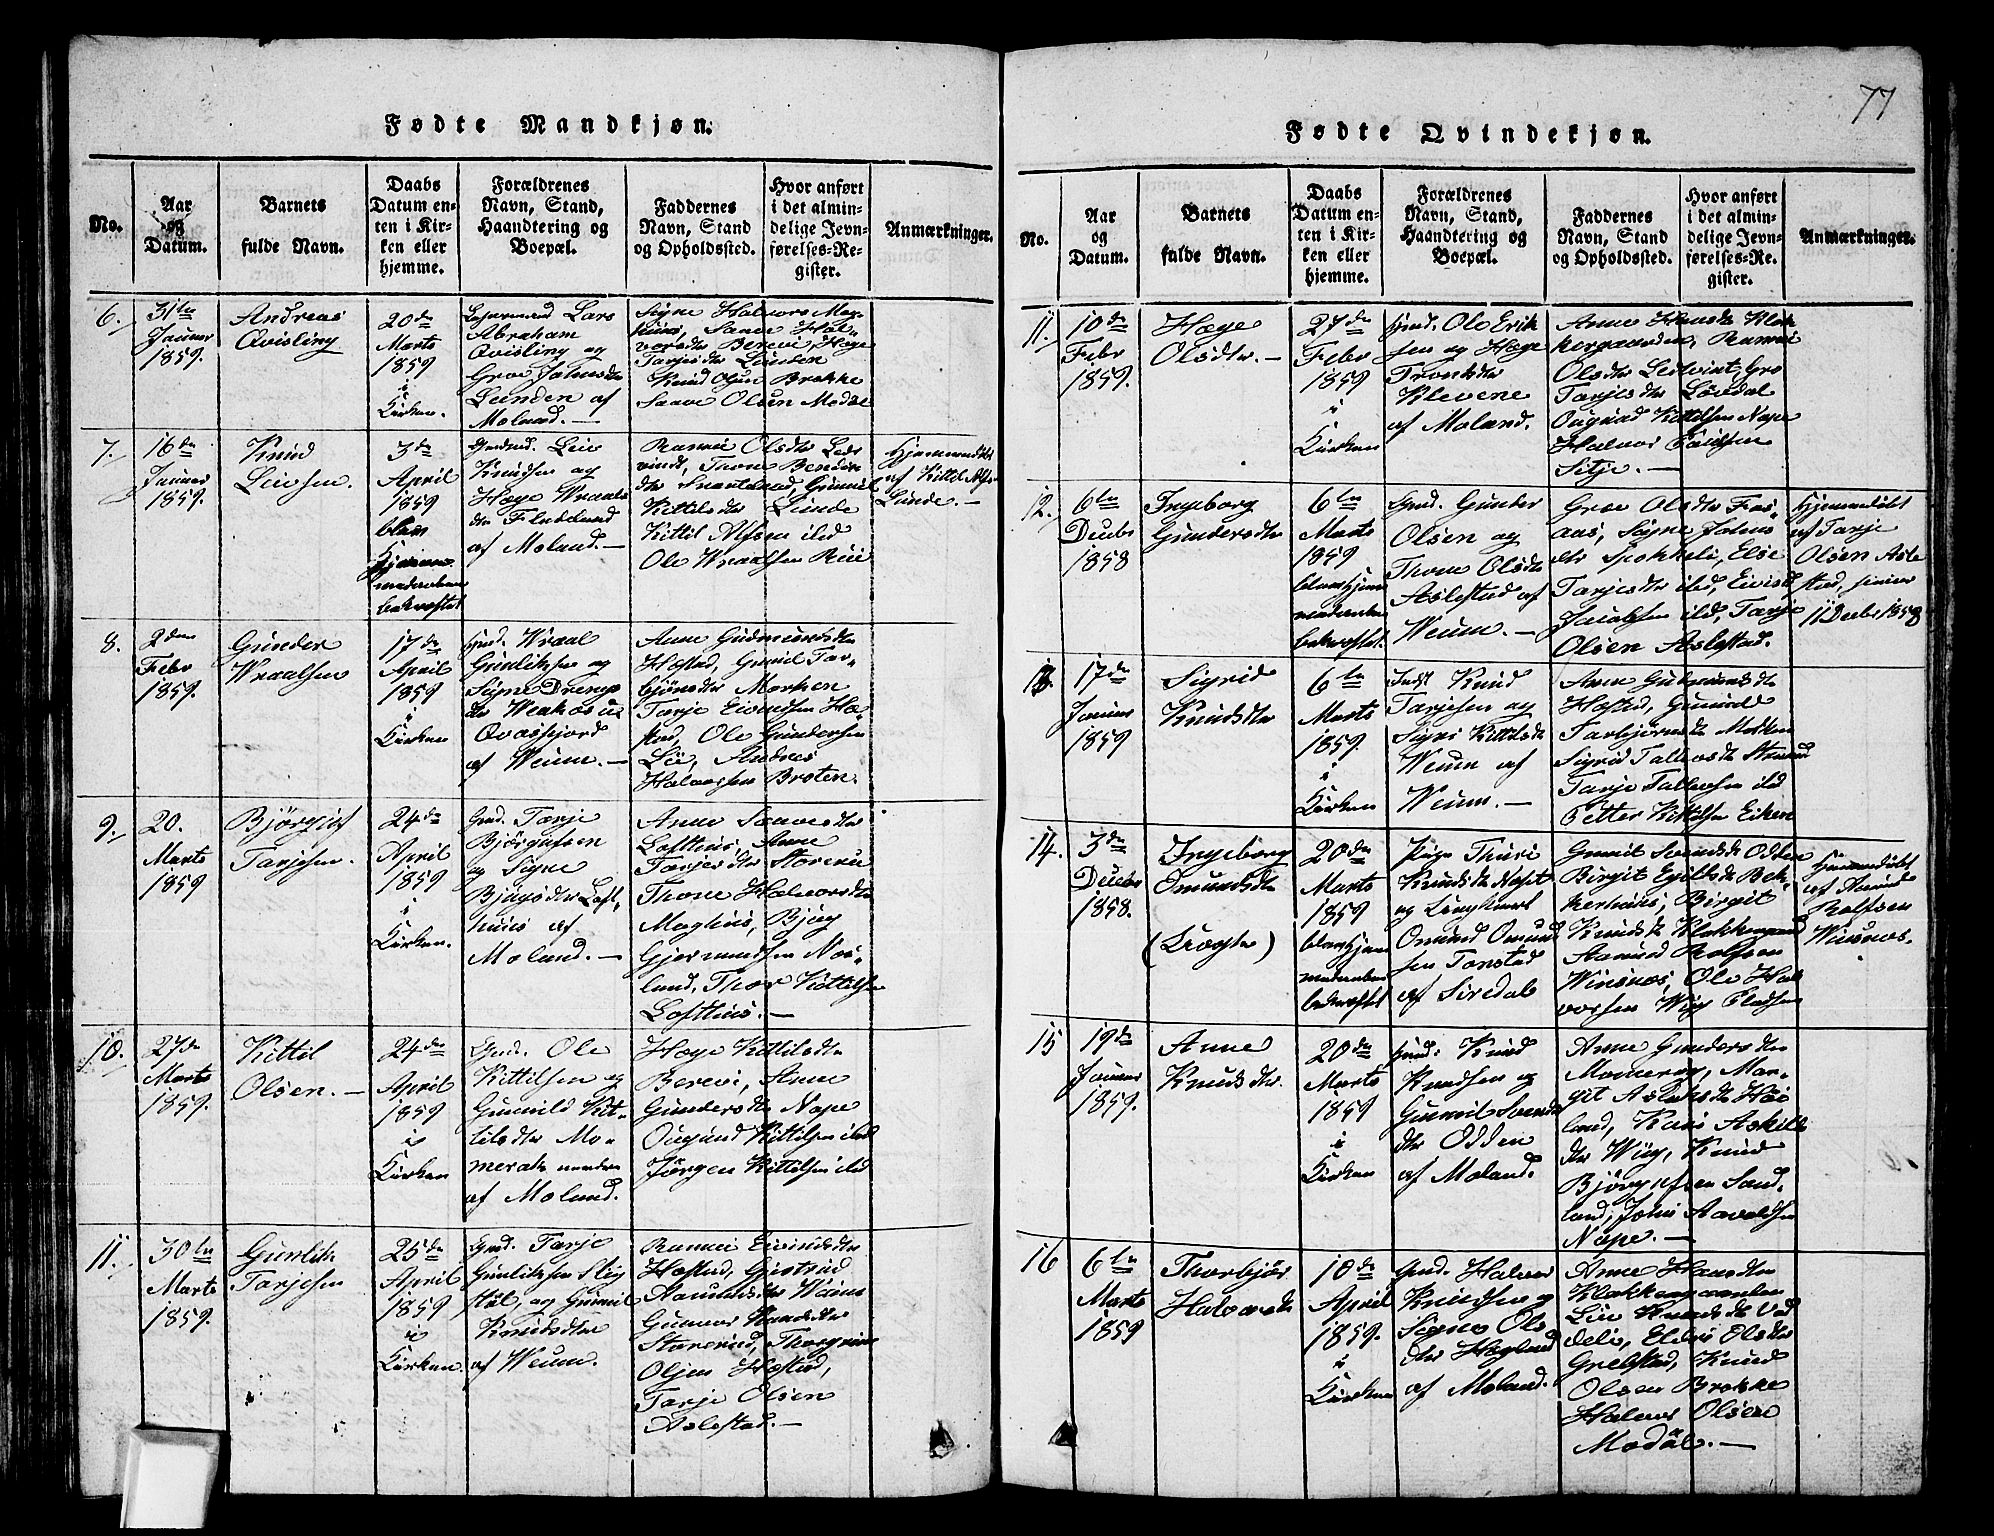 77
Fødte Mandkjøn.
No.
Aar
og
Datum.
Barnets
fulde Navn.
Daabs
Datum en-
ten i Kir-
ken eller
hjemme.
Forældrenes
Navn, Stand,
Haandtering og
Boepæl.
Faddernes
Navn, Stand
og Opholdssted.
Hvor anført
i det almin-
delige Jevn-
førelses-Re-
gister.
Anmærkninger.
6.
31te
Januar
1859.
Andreas
Qvisling
20de
Marts
1859
i
Kirken.
Lars
Abraham
Qvisling og
Groe Johnsdtr
Lunden af
Moland.
Signe Halvors
Berevi, Hæge
Tarjesdtr Lunden
Knud Olsen Brokke
Saave Olsen Modal
7.
16de
Januar
1859.
Knud
Leivsen.
3de
April
1859
blev
Hjemme
daaben
bekræftet
Gmd. Leiv
Knudsen og
Hæge Wraals
dtr
af Moland.
Ranvei Olsdtr
Thone
dtr Gunvil
Kittilsdtr Lunde
Kittil Alfsen ibd
Ole Wraalsen
Hjemmedøbt
af Kittil Alfs.
Lunde.
8.
2den
Febr
1859.
Gunder
Wraalsen
17de
April
1859
i
Kirken
Gmd. Wraal
Gunliksen og
Signe
dtr
Qvasfjord
af Weum.
Anne Gudmundsdtr
Hæstad, Gunvil Tar-
bjönsdtr Morken
Tarje Eivindsen Hæ-
stad, Ole Gundersen
Lie, Andres
Halvorsen Broten.
9.
20.
Marts
1859
Björguf
Tarjesen.
24de
April
1859
i
Kirken.
Gmd. Tarje
Björgufsen
og Signe
Bjugsdtr Loft-
huus af
Moland.
Anne Saavesdtr
Lofthus, Anne
Tarjesdtr
Thone Halvorsdtr
Bjug
Gjermundsen
land, Thor Kittilsen
Lofthus.
10.
27de
Marts
1859.
Kittil
Olsen.
24de
April
1859
i
Kirken
Gmd. Ole
Kittilsen og
Gunvild Kit-
tilsdtr Mo-
merak
af Moland.
Hæge Kittilsdtr
Berevi, Anne
Gundersdtr Nape
Ougund Kittilsen ibd
Jörgen Kittilsen ibd
11.
30te
Marts
1859.
Gunlik
Tarjesen
25de
April
1859
i
Kirken.
Gmd. Tarje
Gunliksen
og Gunvil
Knudsdtr
af Weum.
Ranvei Eivindsdtr
Hæstad,
Aamundsdtr
Gunnar
Olsen Hæstad,
Tarje Olsen
Aslestad.
Fødte Qvindekjøn.
No.
Aar
og
Datum.
Barnets
fulde Navn.
Daabs
Datum en-
ten i Kir-
ken eller
hjemme.
Forældrenes
Navn, Stand,
Haandtering og
Boepæl.
Faddernes
Navn, Stand
og Opholdssted.
Hvor anført
i det almin-
delige Jevn-
førelses-Re-
gister.
Anmærkninger.
11.
10de
Febr
1859.
Hæge
Olsdtr.
27de
Febr
1859
i
Kirken
Gmd. Ole Erik
sen og Hæge
Trondsdtr
Klevene
af Moland.
Anne Hansdtr Klok
kergaarden, Ranvei
Olsdtr Gro
Tarjesdtr Løvdal
Ougund Kittilsen Nape
Halvor
Sitje.
12.
6te
Decbr
1858
Ingeborg
Gundersdtr
6te
Marts
1859
blev Hjem
medaaben
bekræftet.
Gmd. Gunder
Olsen og
Thone Olsdtr
Aslestad af
Weum.
Groe Olsdtr Fos-
aas, Signe Johns
dtr Spokkeli, Else
Tarjesdtr ibd, Eivind
Jacobsen ibd, Tarje
Olsen Aslestad.
Hjemmedøbt
af Tarje
Olsen Asle
stad, junior
11 Decbr 1858
13.
17de
Januar
1859
Sigrid
Knudsdtr
6te
Marts
1859.
i
Kirken
Knud
Tarjesen og
Signe Kittilsdtr
Weum af
Weum.
Anne Gudmundsdtr
Hæstad, Gunvil
Tarbjörnsdtr
Sigrid Tallevsdtr
Tarje Tallevsen ibd
Petter Kittilsen Eiken
14.
3de
Decbr
1858.
Ingeborg
Omundsdtr
(Uægte)
20de
Marts
1859
blev Hjem
medaaben
bekræftet
Pige Thuri
Knudsdtr
og Ungkarl
Omund Omund
sen Tonstad
af Siredal
Gunvil Odden
Birgit
kerhuus, Birgit
Knudsdtr Klokkergaard
Aamund Rolfsen
Winsnæs, Ole Hal
vorsen
Hjemmedøbt
af Amund
Rolfsen
Winsnæs.
15
19de
Januar
1859.
Anne
Knudsdtr.
20de
Marts
1859
i
Kirken
Gmd: Knud
Knudsen og
Gunvil Svends
dtr Odden
af Moland.
Anne Gundersdtr
Momerag, Mar-
git Aslaksdtr
land, Kari Askilds
dtr Knud
Björgufsen Sand-
land, John Aavoldsen
Nape.
16
6te
Marts
1859
Thorbjör
Halvorsdtr
10de
April
1859.
i
Kirken
Gmd. Halvor
Knudsen og
Signe Ols
dtr Hægland
af Moland.
Anne Hansdtr
Klokkergaarden
Liv Knudsdtr
Olsdtr
Grebstad, Knud
Olsen Brokke
Halvor Olsen
Modal.